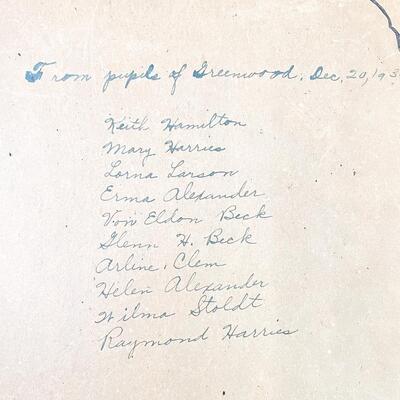 From pupils of Greenwood. Dec. 20, 193
Keith Hamilton
Mary Harries
Lorna Larson
Erma Alexander
Von Eldon Beck
Glenn H. Beck
Arline Clem
Helen Alexander
Wilma Stoldt
Raymond Harries